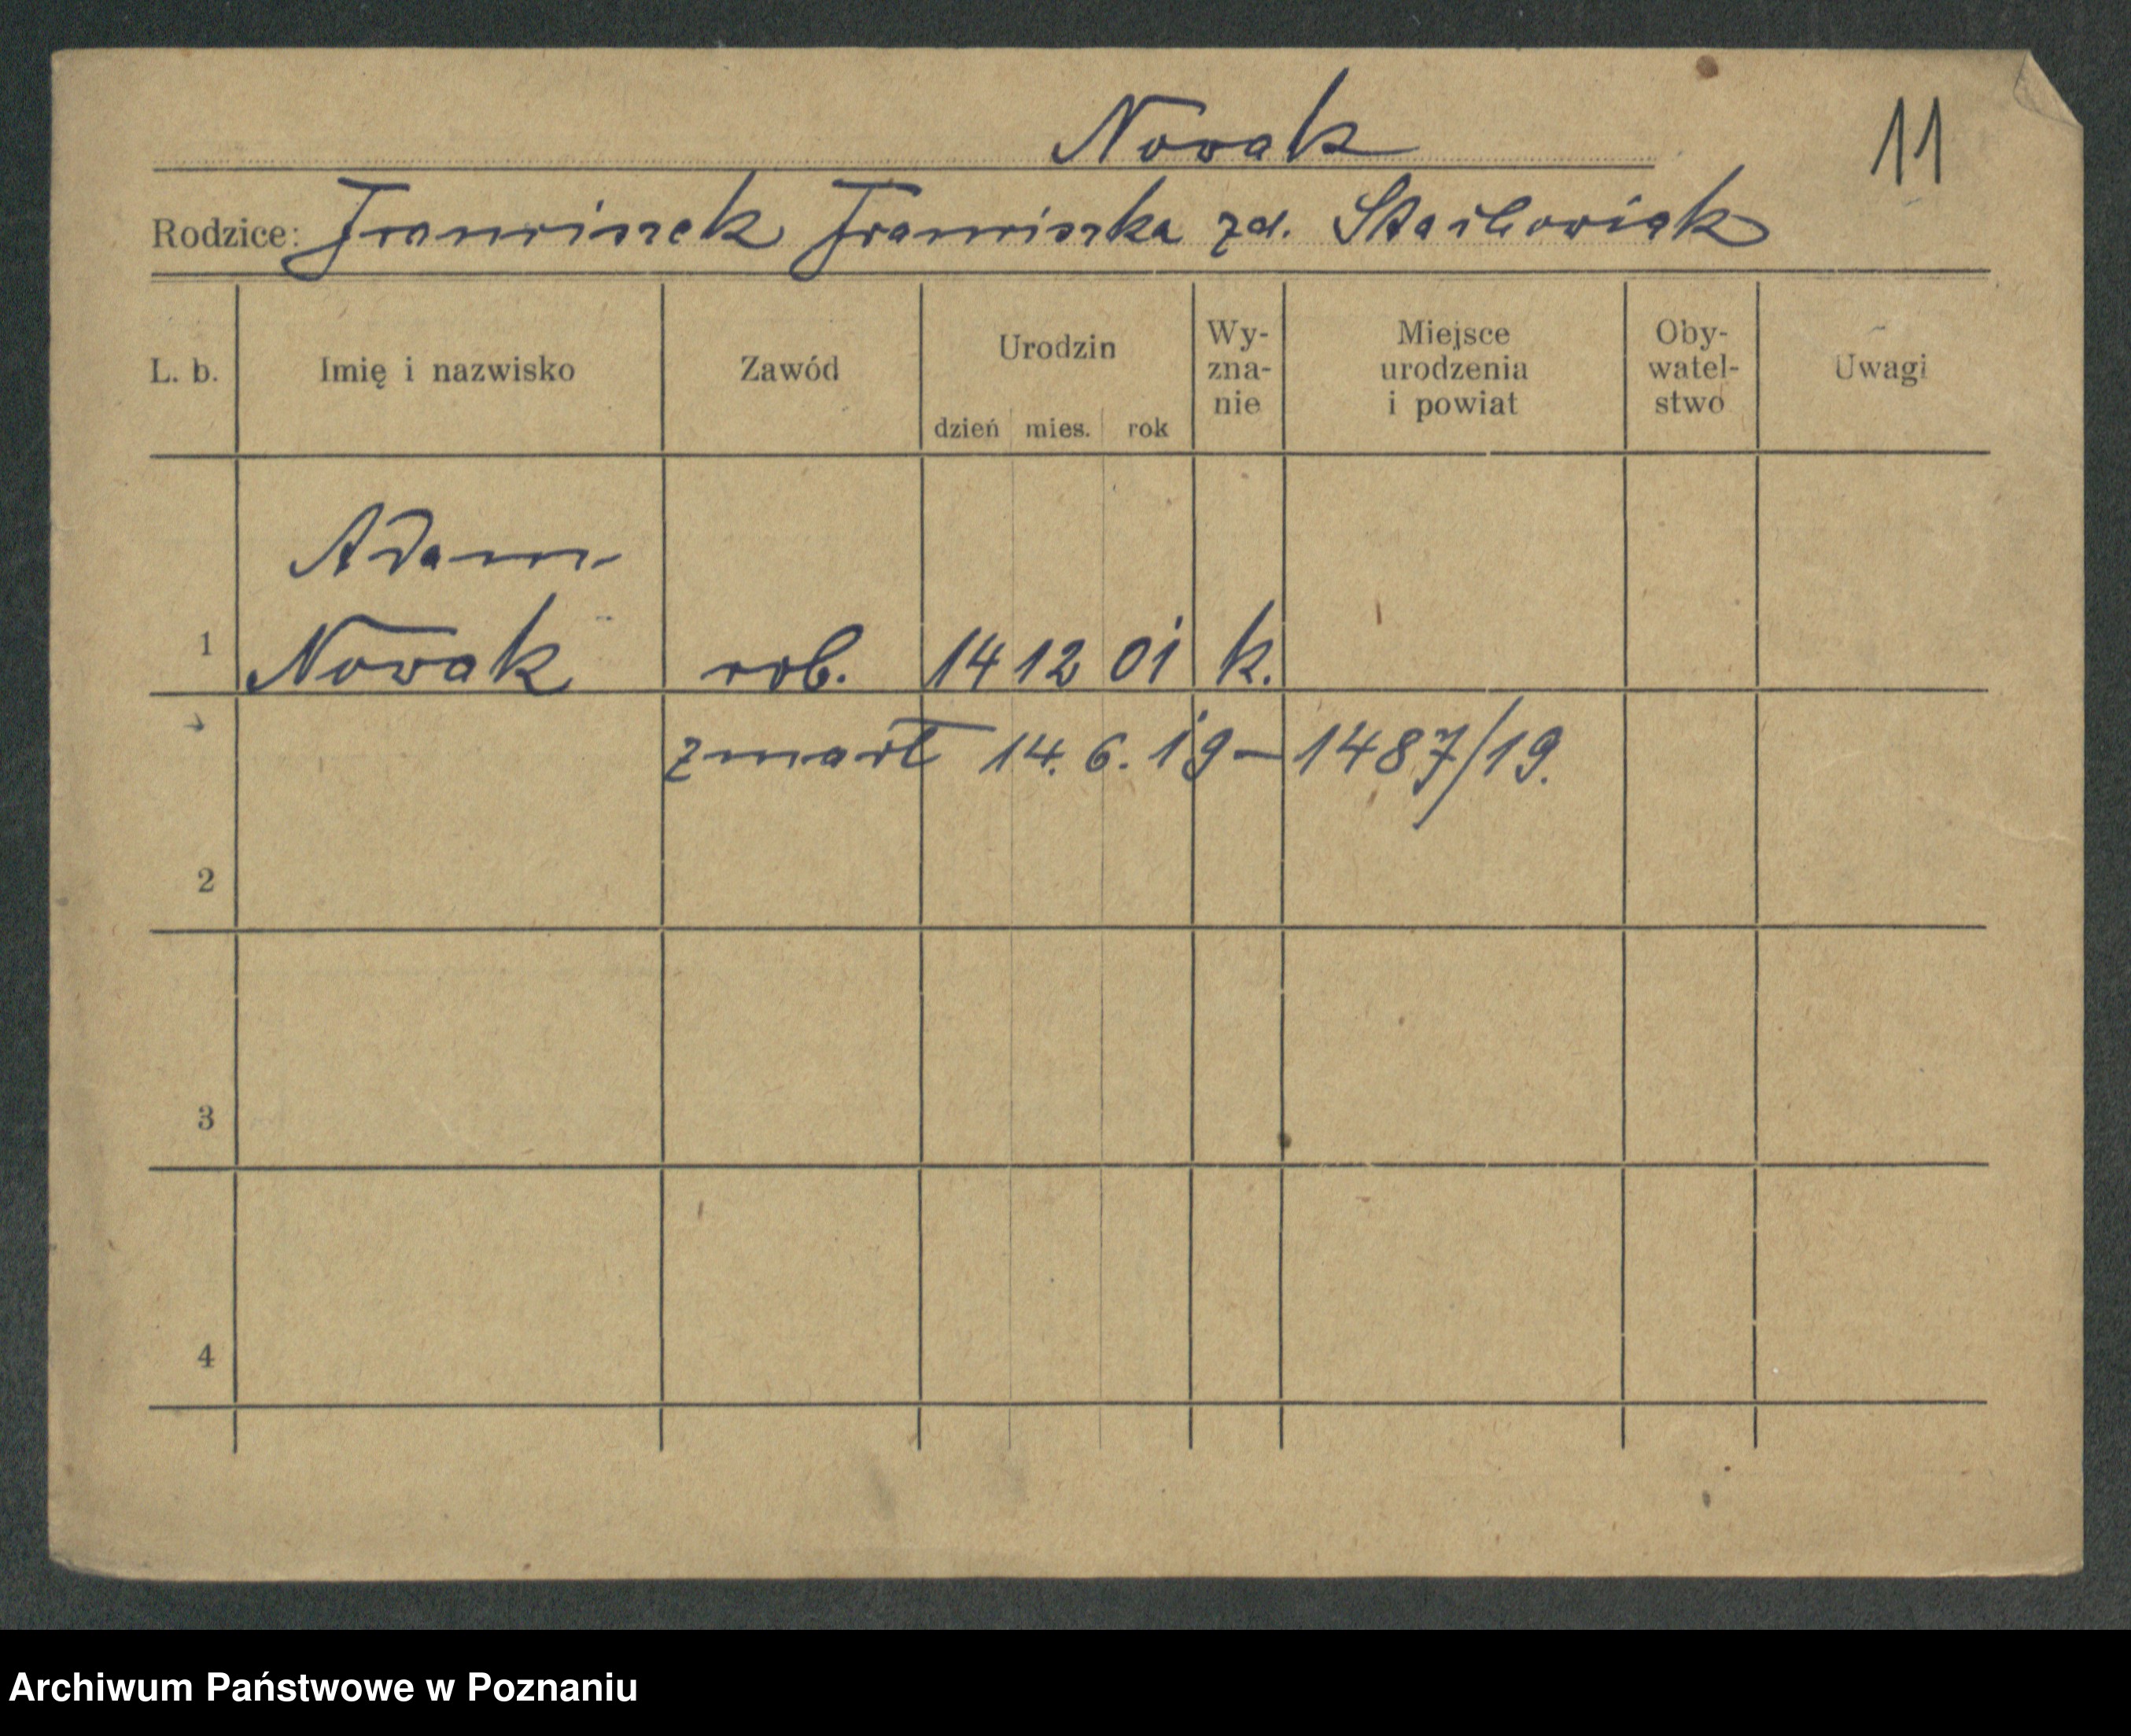 Nowak
11
Rodzice: Franciszek Franciszka zd. Stachowiak
L. b. Imię i nazwisko Zawód Urodzin dzień mies. rok Wy-zna-nie Miejsce urodzenia i powiat Oby-watel-stwo Uwagi
Adam
1 Nowak rob. 14 12 01 k.
zmarł 14. 6. 19 – 1487/19.
2
3
4
Archiwum Państwowe w Poznaniu